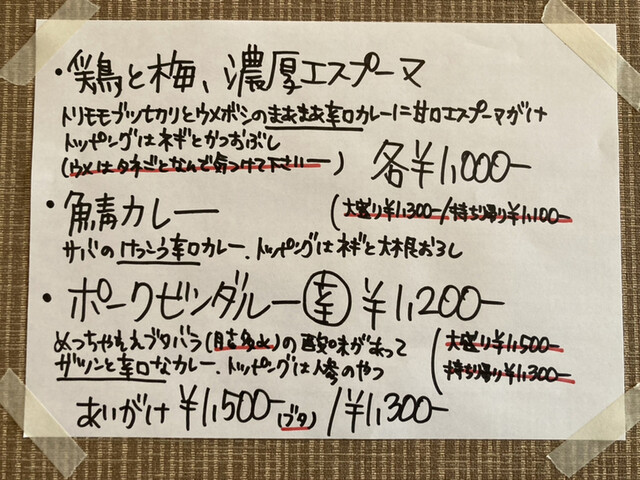 ・鶏と梅、濃厚エスプーマ
トリモモブツセカリとウメボシのまあまあ辛口カレーに甘口エスプーマがけ
トッピングはネギとかつおぶし
(ウメはタネごとなんで気つけて下さいー)
各¥1,000-
・鯖カレー
(大盛り¥1,300-/持ち帰り¥1,100-
サバのけっこう辛口カレー、トッピングはネギと大根おろし
・ポークビンダルー辛 ¥1,200-
めっちゃええブタバラ(脂多め)の酸味があって
(大盛り¥1,500-
ガツンと辛口なカレー、トッピングは人参のやつ
持ち帰り¥1,300-
あいがけ ¥1,500-(ブタ)/¥1,300-